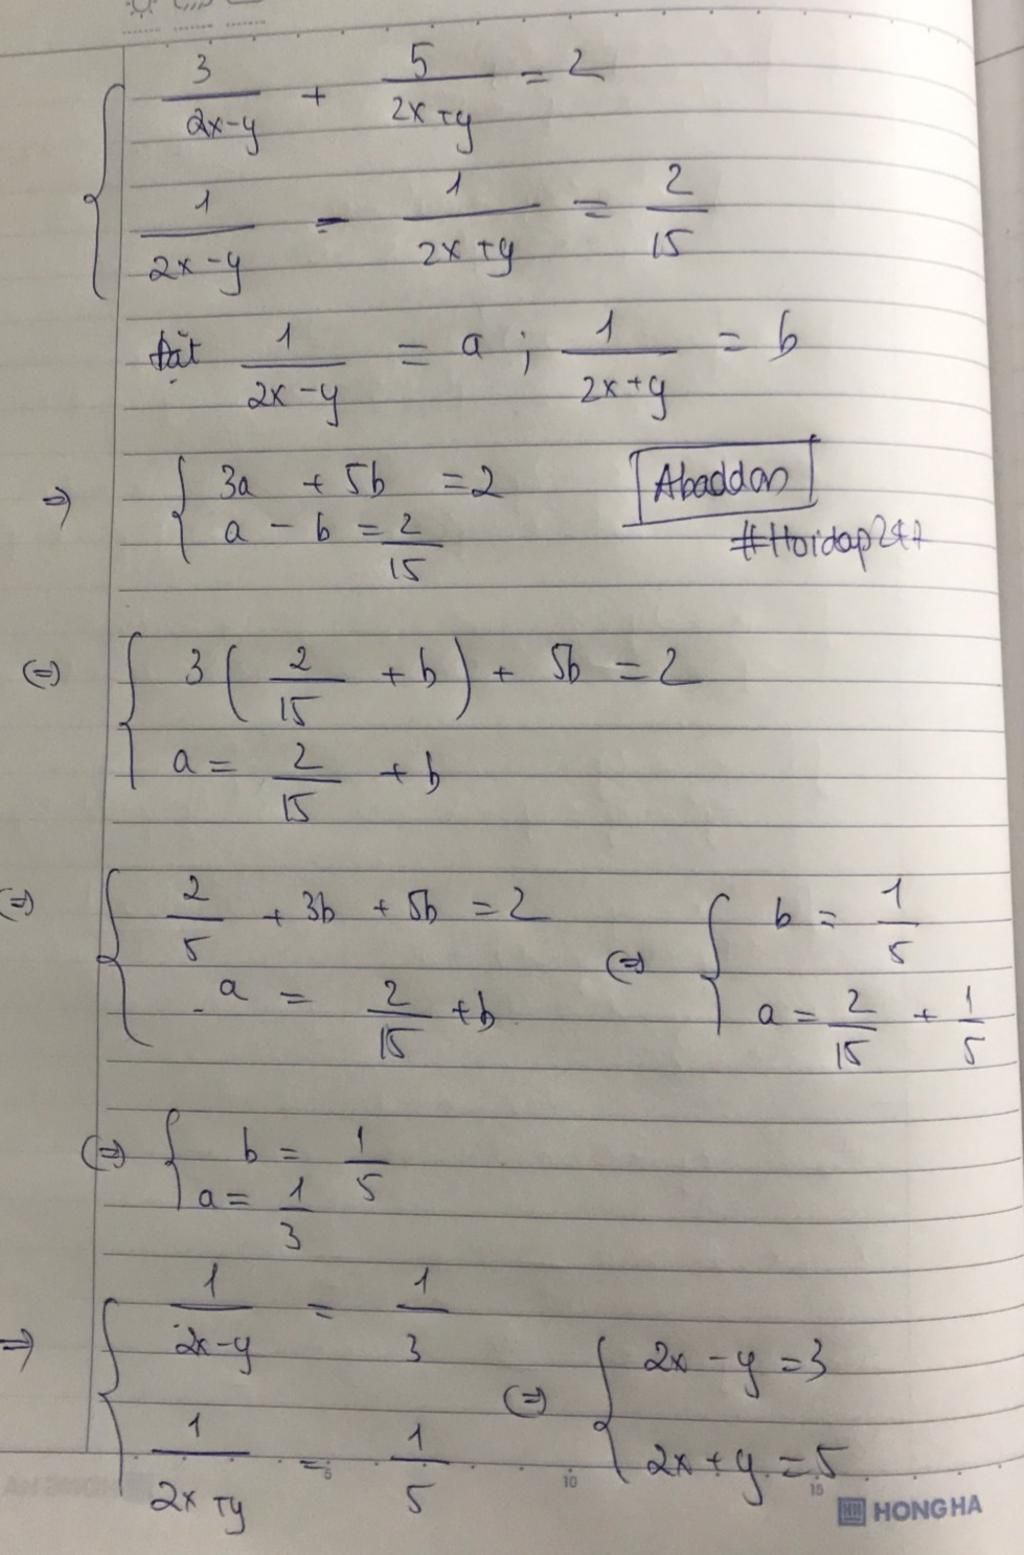 { 3/(2x-y) + 5/(2x+y) = 2
1/(2x-y) - 1/(2x+y) = 2/15
Đặt 1/(2x-y) = a ; 1/(2x+y) = b
⇒ { 3a + 5b = 2
a - b = 2/15
Abaddon
#Hoidap247
⇔ { 3(2/15 + b) + 5b = 2
a = 2/15 + b
⇔ { 2/5 + 3b + 5b = 2
a = 2/15 + b
⇔ { b = 1/5
a = 2/15 + 1/5
⇔ { b = 1/5
a = 1/3
⇒ { 1/(2x-y) = 1/3
1/(2x+y) = 1/5
⇔ { 2x - y = 3
2x + y = 5
5 10 15
HONG HA